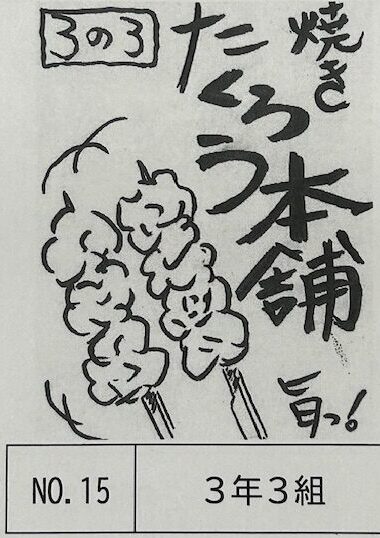 3の3
焼き
たくろう
本舗
旨っ!
NO.15
3年3組